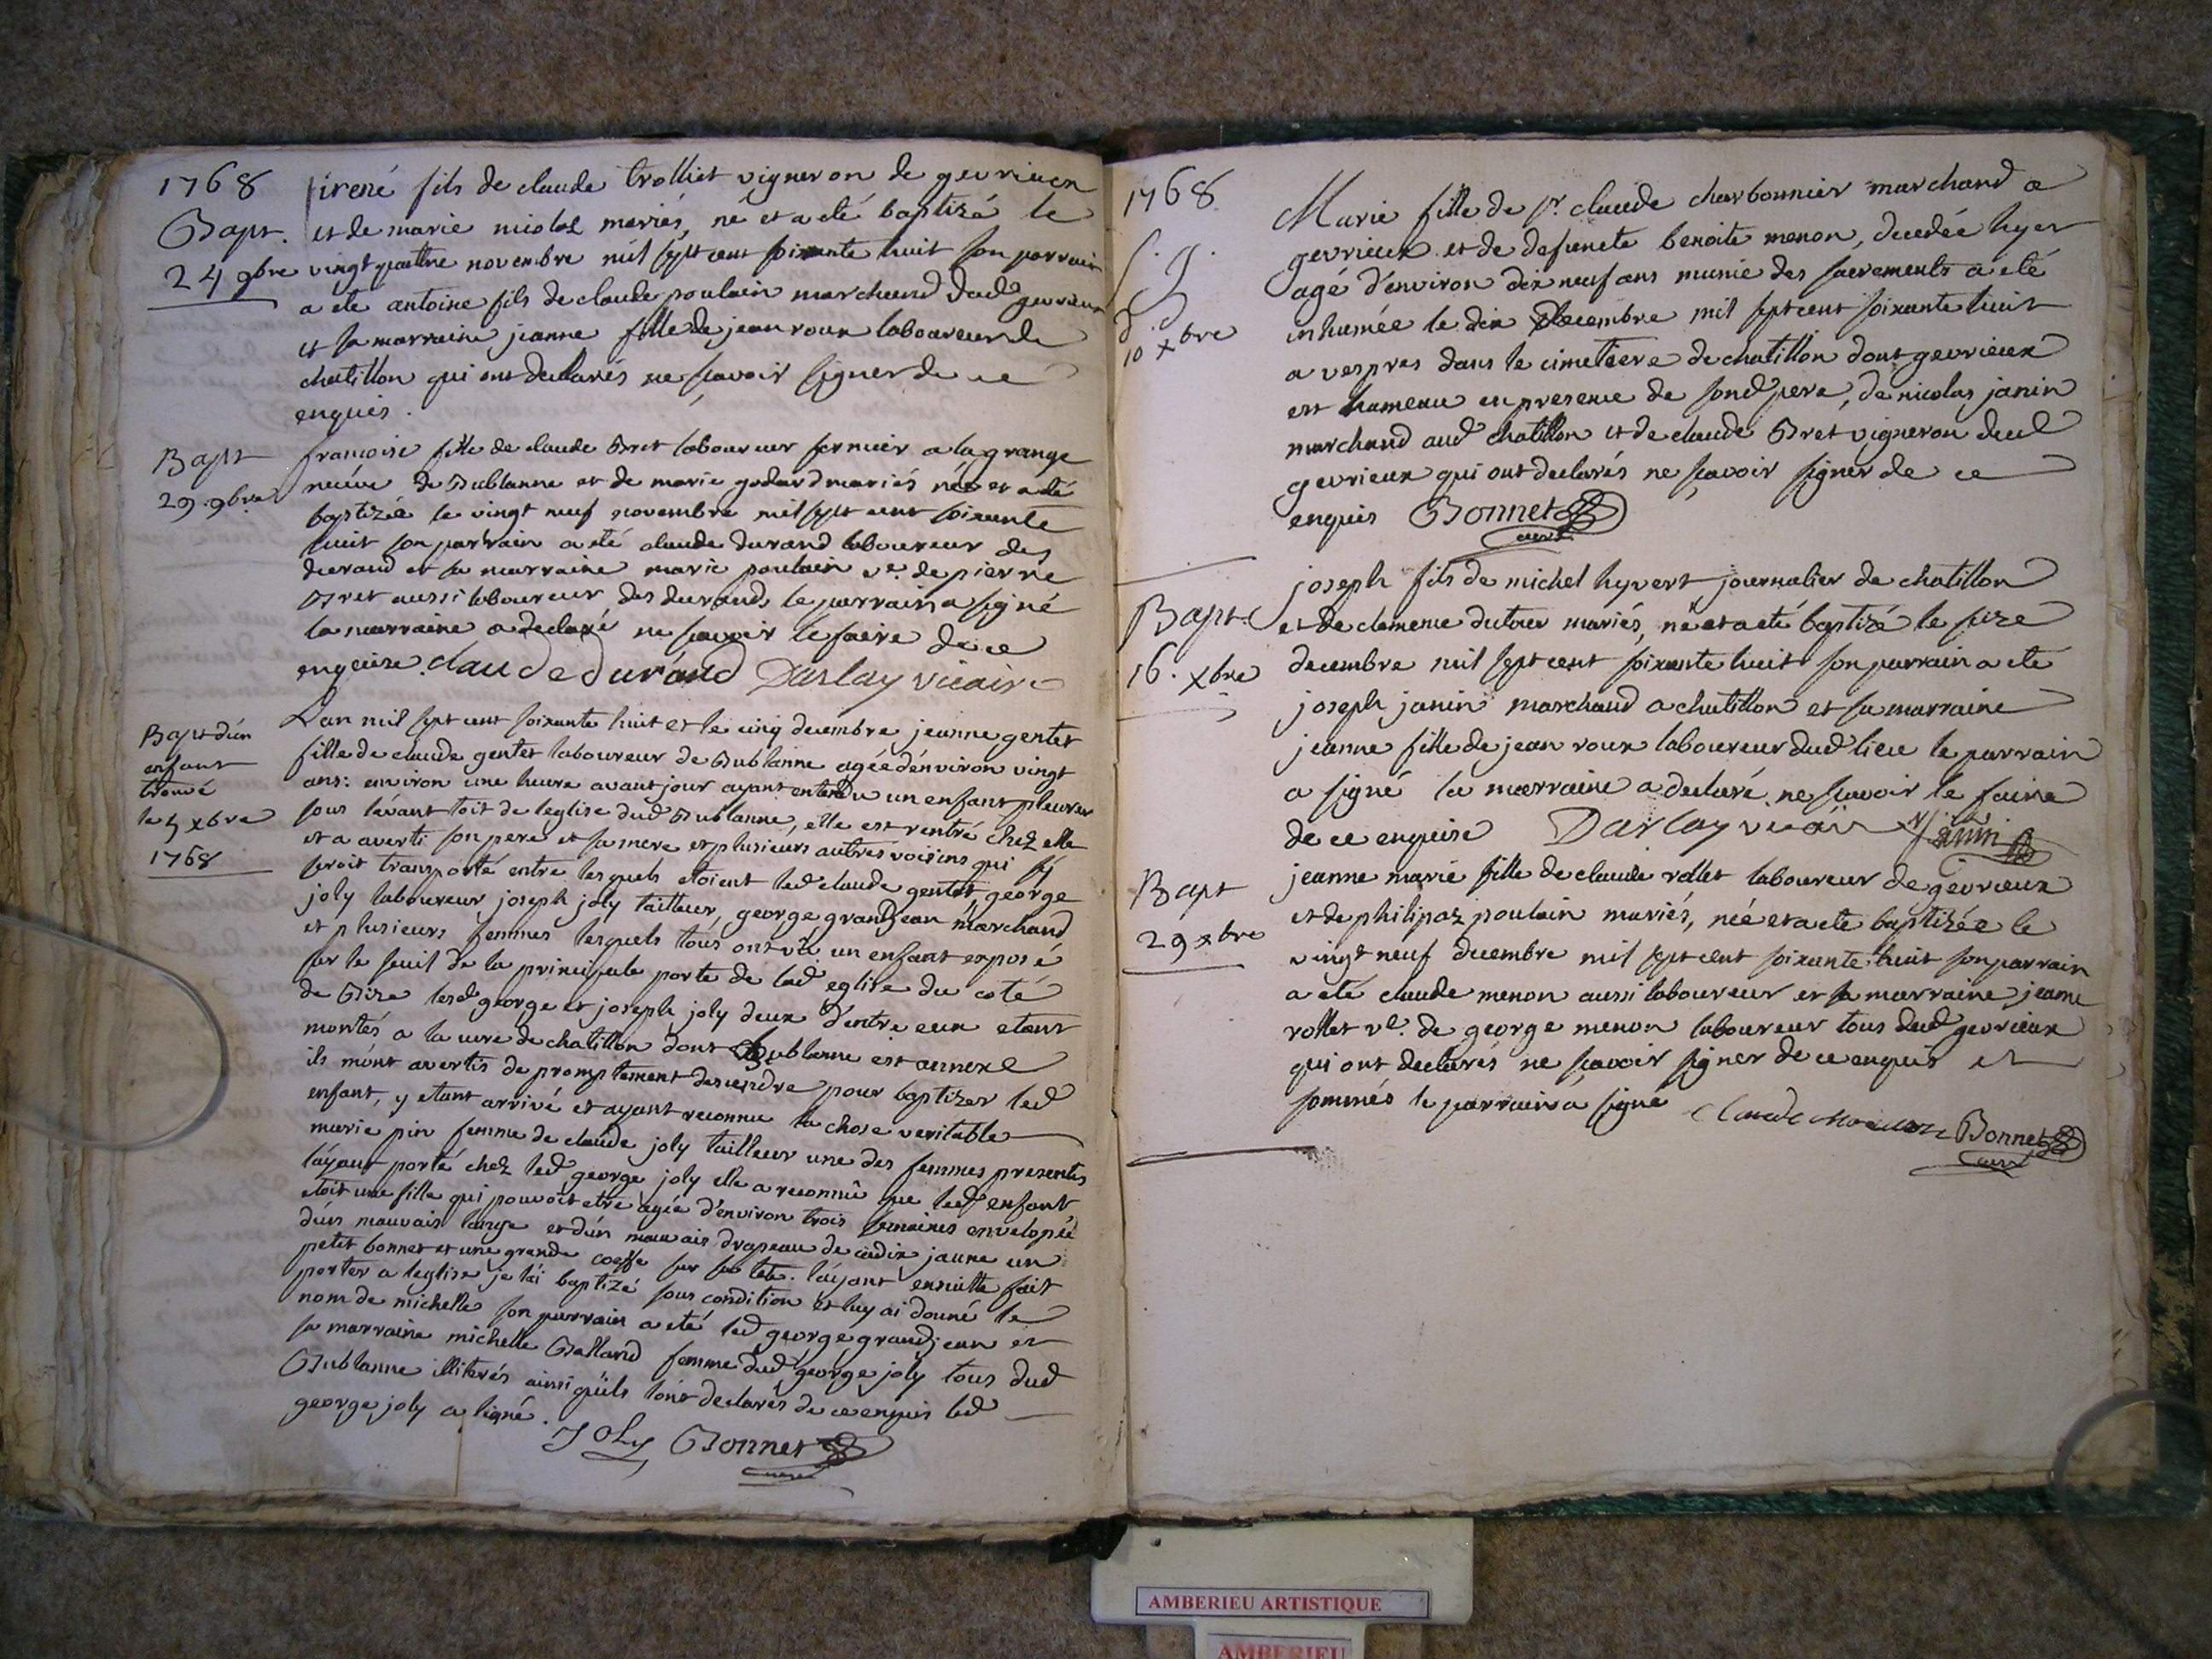 1768
Bapt.
24 9bre
irené fils de claude trolliet vigneron de gevrieux
et de marie nicolas mariés, né et a eté baptizé le
vingt quattre novembre mil sept cent soixante huit son parrain
a ete antoine fils de claude poulain marchand dud gevrieux
et sa marraine jeanne fille de jean roux laboureur de
chatillon qui ont declarés ne sçavoir signer de ce
enquis.
Bapt
29. 9bre
francoise fille de claude Bret laboureur fermier a la grange
neuve de Bublanne et de marie godard mariés née et a eté
baptizée le vingt neuf novembre mil sept cent soixante
huit son parrain a eté claude durand laboureur des
durand et sa marraine marie poulain ve. de pierre
Bret aussi laboureur des durands le parrain a signé
la marraine a declaré ne sçavoir le faire de ce
enquise. claude durand Darlay vicaire
Bapt d'un
enfant
trouvé
le 5 xbre
1768
L'an mil sept cent soixante huit et le cinq decembre jeanne gentet
fille de claude gentet laboureur de Bublanne agée d'environ vingt
ans: environ une heure avant jour ayant entendu un enfant pleurer
sous l'avant toit de leglise dud Bublanne, elle est rentré chez elle
et a averti son pere et sa mere et plusieurs autres voisins qui sy
seroit transporté entre lesquels etoient led claude gentet, george
joly laboureur joseph joly tailleur, george grandjean marchand
et plusieurs femmes lesquels tous ont vû un enfant exposé
sur le seuil de la principale porte de lad eglise du coté
de Bize lesd george et joseph joly deux d'entre eux etant
montés a la cure de chatillon dont Bublanne est annexe
ils m'ont avertis de promptement descendre pour baptizer led
enfant, y etant arrivé et ayant reconnu la chose veritable
marie pin femme de claude joly tailleur une des femmes presentes
l'ayant porté chez led george joly elle a reconnû que led enfant
etoit une fille qui pouvoit etre agée d'environ trois semaines envelopée
d'un mauvais lange et d'un mauvais drapeau de cadix jaune un
petit bonnet et une grande coeffe sur sa tete. l'ayant ensuitte fait
porter a leglise je l'ai baptizé sous condition et luy ai donné le
nom de michelle son parrain a eté led george grandjean et
sa marraine michelle Balland femme dud george joly tous dud
Bublanne illiterés ainsi qu'ils l'ont declarés de ce enquis led
george joly a signé.
JOLy Bonnet
curé
1768
S. g.
10 xbre
Marie fille de sr. claude charbonnier marchand a
gevrieux et de defuncte benoite menon, decedée hyer
agé d'environ dix neuf ans munie des sacrements a eté
inhumée le dix decembre mil sept cent soixante huit
a vespres dans le cimetiere de chatillon dont gevrieux
est hameau en presence de sond pere, de nicolas janin
marchand aud chatillon et de claude Bret vigneron dud
gevrieux qui ont declarés ne sçavoir signer de ce
enquis Bonnet
curé
Bapt.
16. xbre
joseph fils de michel hyvert journalier de chatillon
et de clemence dutour mariés, né et a eté baptizé le seize
decembre mil sept cent soixante huit son parrain a eté
joseph janin marchand a chatillon et sa marraine
jeanne fille de jean roux laboureur dud lieu le parrain
a signé la marraine a declaré ne sçavoir le faire
de ce enquise Darlay vicair Janin
Bapt
29 xbre
jeanne marie fille de claude rollet laboureur de gevrieux
et de philipaz poulain mariés, née et a ete baptizée le
vingt neuf decembre mil sept cent soixante huit son parrain
a eté claude menon aussi laboureur et sa marraine jeanne
rollet ve. de george menon laboureur tous dud gevrieux
qui ont declarés ne sçavoir signer de ce enquis et
sommés le parrain a signé claude menon Bonnet
curé
AMBERIEU ARTISTIQUE
AMBERIEU